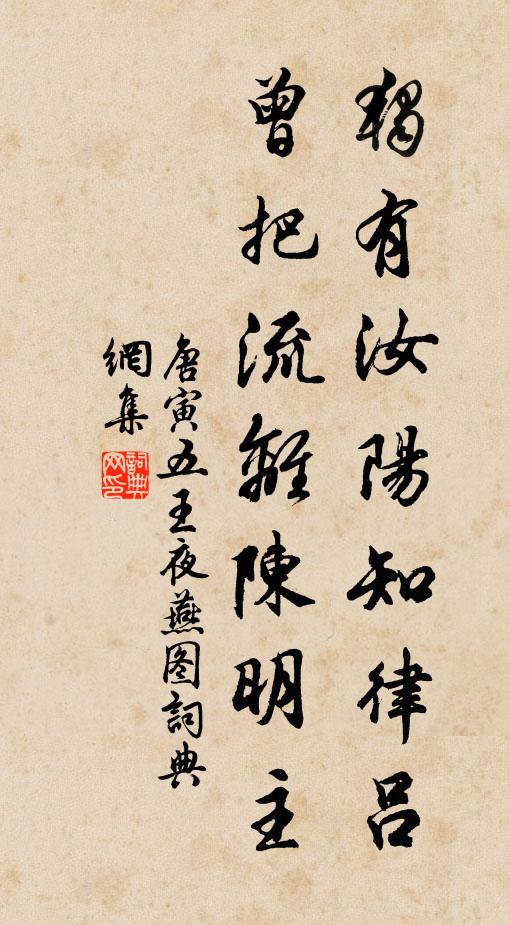 獨有汝陽知律呂
曾把流離陳明主
唐寅五王夜燕图詞典
網集
詞典网印